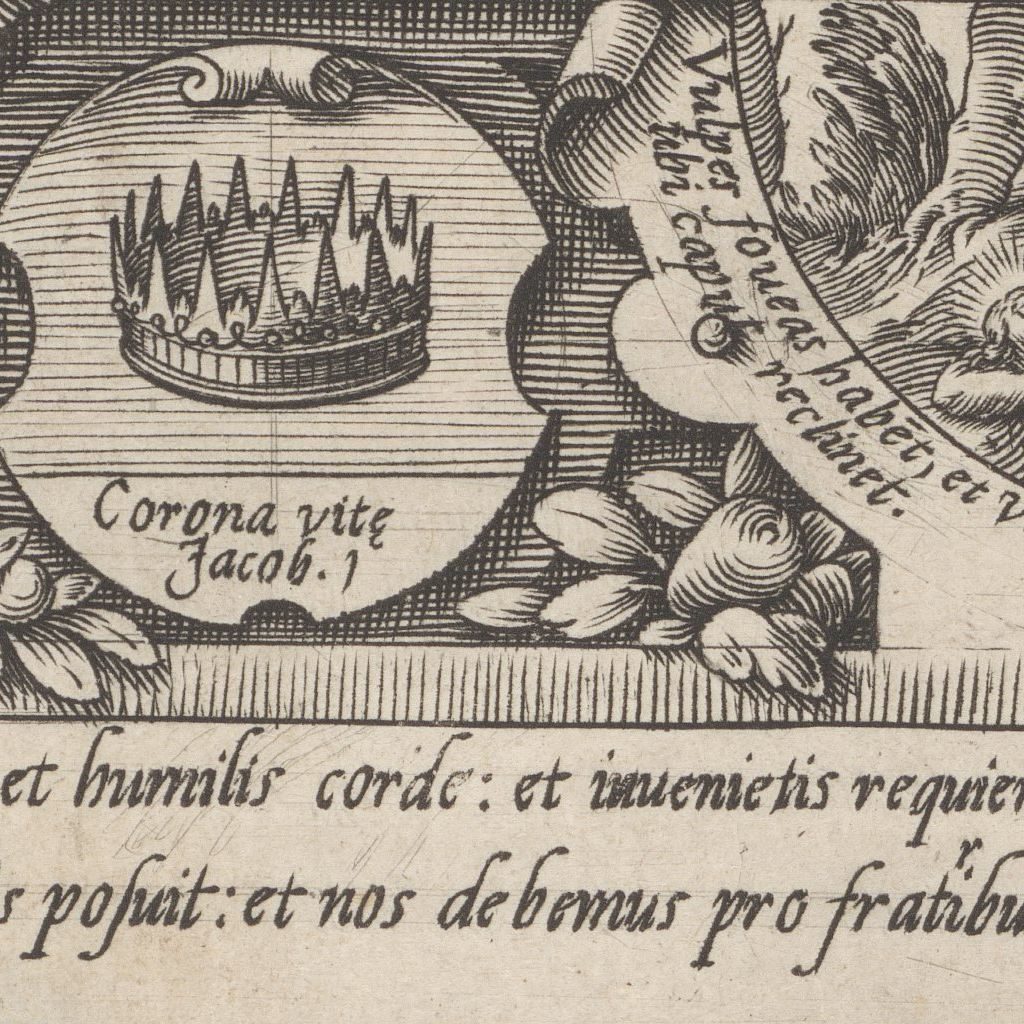 Corona vitę
Jacob. 1
Vulpes foueas habēt, et
tibi caput reclinet.
et humilis corde: et inuenietis
poſuit: et nos debemus pro